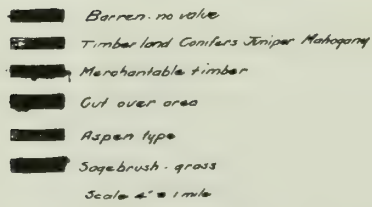 Barren - no value
Timberland Conifers Juniper Mahogany
Merchantable timber
Cut over area
Aspen type
Sagebrush - grass
Scale = 1 mile